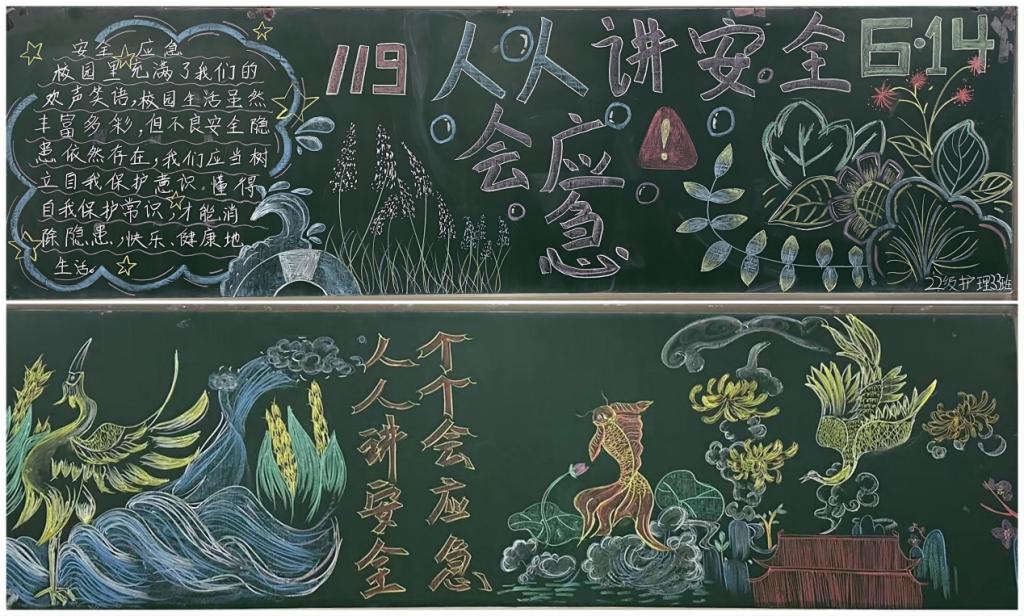 安全 应急
校园里充满了我们的
欢声笑语,校园生活虽然
丰富多彩,但不良安全隐
患依然存在,我们应当树
立自我保护意识。懂得
自我保护常识,才能消
除隐患,快乐、健康地
生活。
119
人人讲安全
会应急
!
6·14
22级护理33班
个个会应急
人人讲安全